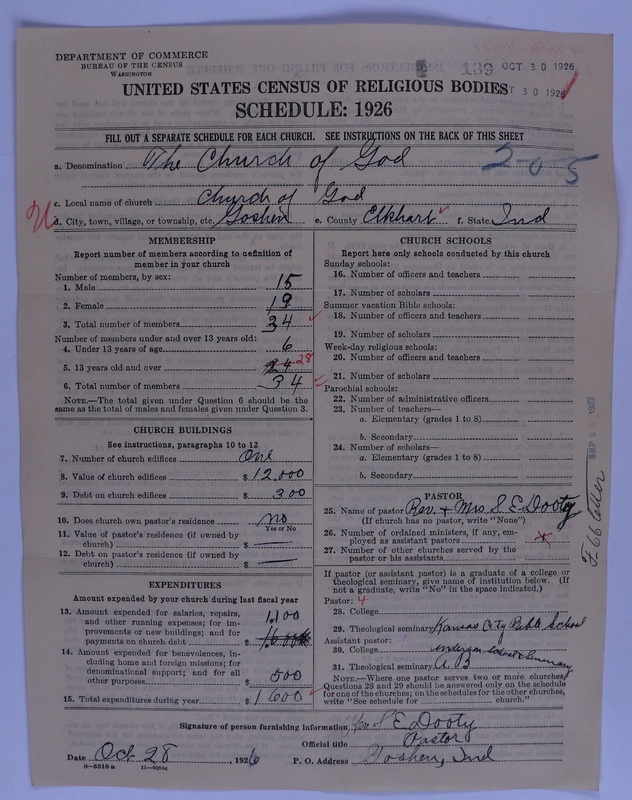 DEPARTMENT OF COMMERCE
BUREAU OF THE CENSUS
WASHINGTON
139 OCT 30 1926
OCT 30 1926
UNITED STATES CENSUS OF RELIGIOUS BODIES
SCHEDULE: 1926
FILL OUT A SEPARATE SCHEDULE FOR EACH CHURCH. SEE INSTRUCTIONS ON THE BACK OF THIS SHEET
a. Denomination The Church of God
2-0-5
c. Local name of church Church of God
d. City, town, village, or township, etc. Goshen e. County Elkhart f. State Ind
MEMBERSHIP
Report number of members according to definition of
member in your church
Number of members, by sex:
1. Male 15
2. Female 19
3. Total number of members 34
Number of members under and over 13 years old:
4. Under 13 years of age 6
5. 13 years old and over 34 28
6. Total number of members 34
NOTE.—The total given under Question 6 should be
same as the total of males and females given under Question 3.
CHURCH BUILDINGS
See instructions, paragraphs 10 to 12
7. Number of church edifices One
8. Value of church edifices $12.000
9. Debt on church edifices $300
10. Does church own pastor's residence no
Yes or No
11. Value of pastor's residence (if owned by
church) $ —
12. Debt on pastor's residence (if owned by
church) $ —
EXPENDITURES
Amount expended by your church during last fiscal year
13. Amount expended for salaries, repairs,
and other running expenses; for im-
provements or new buildings; and for
payments on church debt $ 1,100
14. Amount expended for benevolences, in-
cluding home and foreign missions; for
denominational support; and for all
other purposes $ 500
15. Total expenditures during year $1600
CHURCH SCHOOLS
Report here only schools conducted by this church
Sunday schools:
16. Number of officers and teachers
17. Number of scholars
Summer vacation Bible schools:
18. Number of officers and teachers
19. Number of scholars
Week-day religious schools:
20. Number of officers and teachers
21. Number of scholars
Parochial schools:
22. Number of administrative officers
23. Number of teachers—
a. Elementary (grades 1 to 8)
b. Secondary
24. Number of scholars—
a. Elementary (grades 1 to 8)
b. Secondary
PASTOR
25. Name of pastor Rev. + Mrs. S E Dooty
(If church has no pastor, write "None")
26. Number of ordained ministers, if any, em-
ployed as assistant pastors
27. Number of other churches served by the
pastor or his assistants
If pastor (or assistant pastor) is a graduate of a college or
theological seminary, give name of institution below. (If
not a graduate, write "No" in the space indicated.)
Pastor: 4
28. College
29. Theological seminary Kansas City Bible School
Assistant pastor:
30. College
31. Theological seminary A.B
NOTE.—Where one pastor serves two or more churches,
Questions 28 and 29 should be answered only on the schedule
for one of the churches; on the schedules for the other churches,
write "See schedule for church."
Signature of person furnishing information S E Dooty
Official title Pastor
Date Oct 28, 1926 P. O. Address Goshen, Ind
8—5518 a